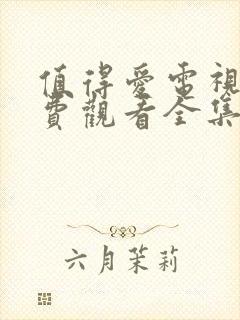 值得愛電視
費觀看全集
六月茉莉